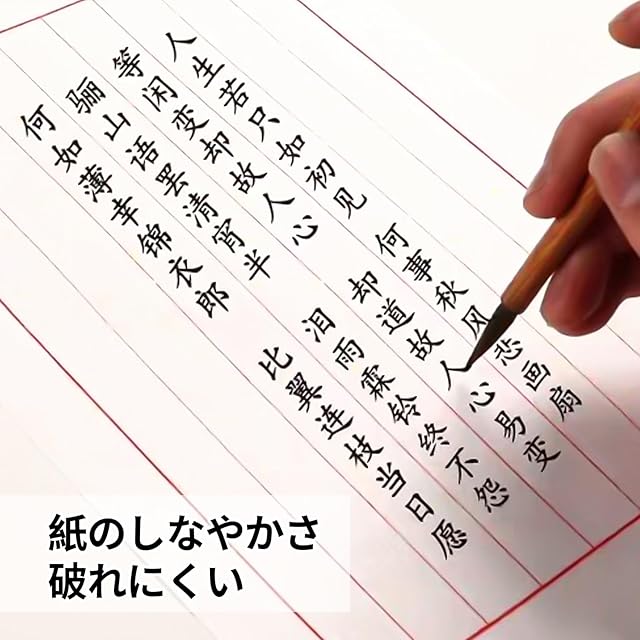 人生若只如初见 何事秋风悲画扇
等闲变却故人心 却道故人心易变
骊山语罢清宵半 泪雨霖铃终不怨
何如薄幸锦衣郎 比翼连枝当日愿
紙のしなやかさ
破れにくい